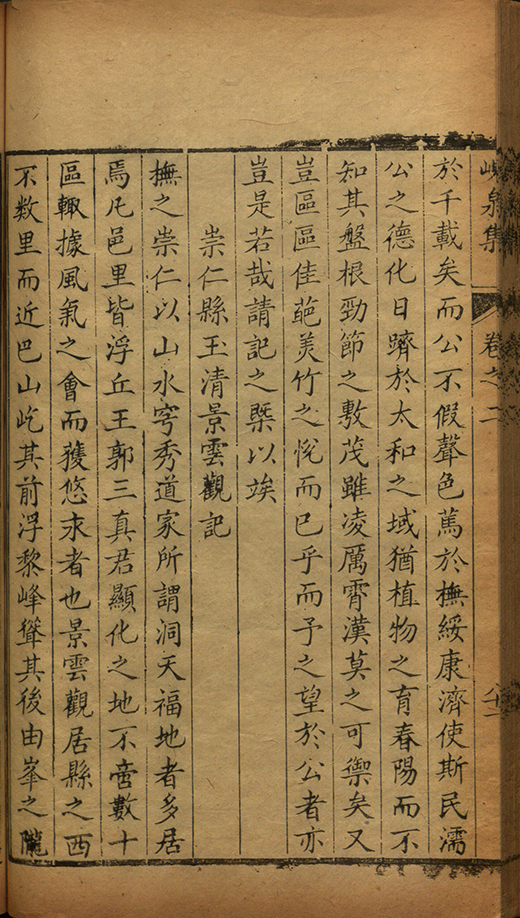 峴泉集 卷之二
於千載矣而公不假聲色篤於撫綏康濟使斯民濡
公之德化日躋於太和之域猶植物之育春陽而不
知其盤根勁節之敷茂雖凌厲霄漢莫之可禦矣又
豈區區佳葩美竹之悅而已乎而予之望於公者亦
豈是若哉請記之槩以竢
崇仁縣玉清景雲觀記
撫之崇仁以山水穹秀道家所謂洞天福地者多居
焉凡邑里皆浮丘王郭三真君顯化之地不啻數十
區輙據風氣之會而獲悠求者也景雲觀居縣之西
不数里而近巴山屹其前浮黎峰聳其後由峯之隴